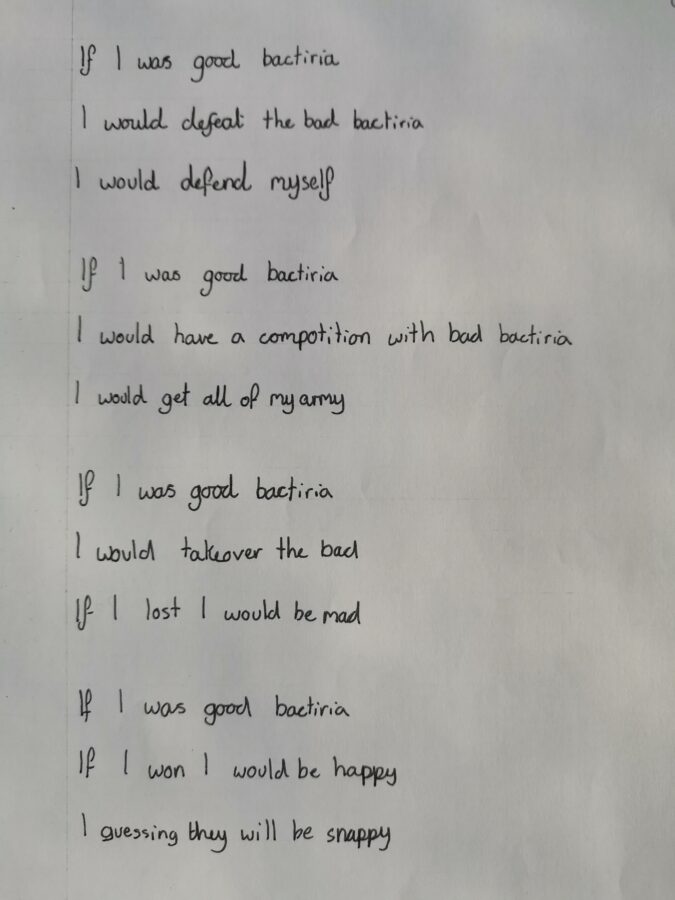 If I was good bactiria
I would defeat the bad bactiria
I would defend myself
If I was good bactiria
I would have a compotition with bad bactiria
I would get all of my army
If I was good bactiria
I would takeover the bad
If I lost I would be mad
If I was good bactiria
If I won I would be happy
I guessing they will be snappy